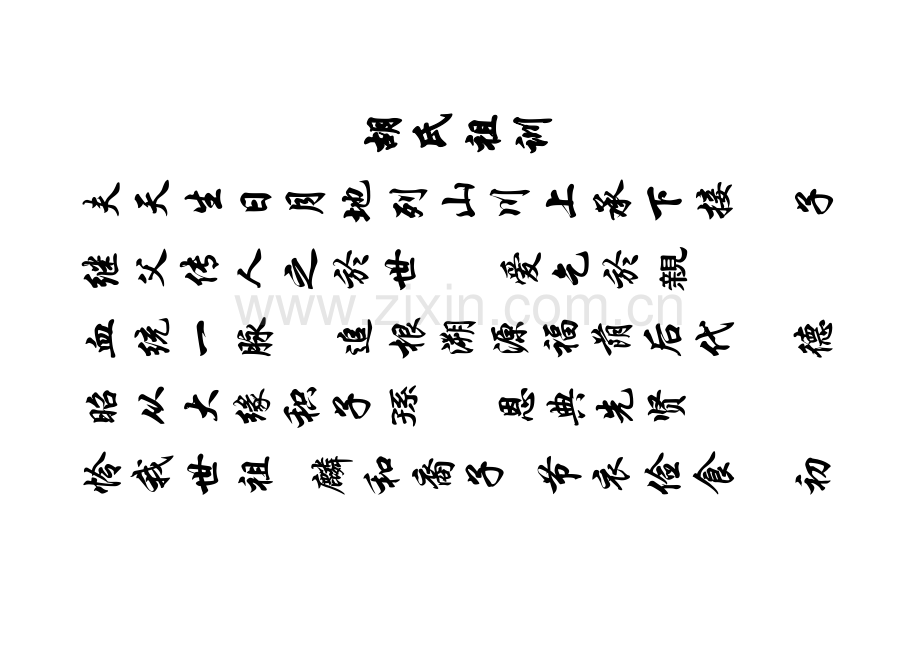 胡氏祖训
夫天生日月地列山川上承下接 子
继父传人之於世 爱乞於親
血统一脉 追根溯源福荫后代 德
昭从大缘积子孫 恩典先贤
怜我世祖 麟和裔子 节衣俭食 初
www.zixin.com.cn